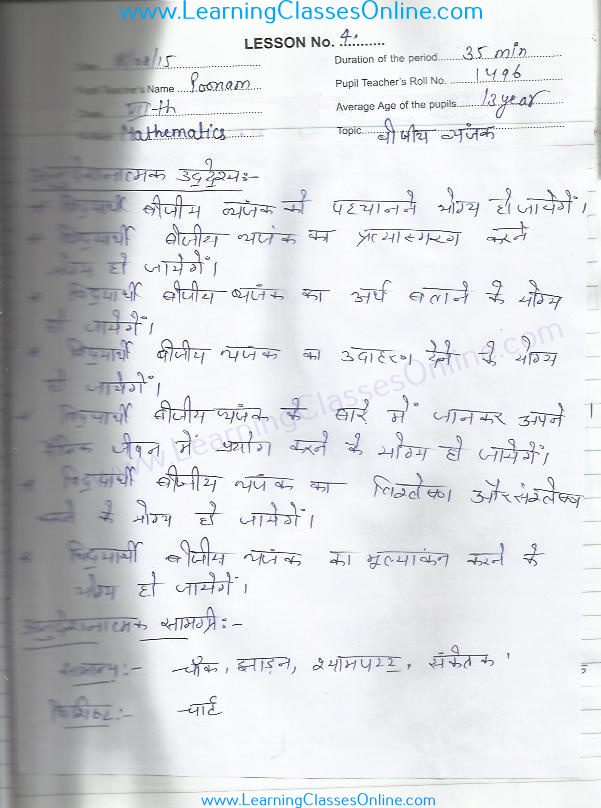 www.LearningClassesOnline.com
LESSON No. 4.
Date /15 Duration of the period 35 min
Pupil Teacher's Name Poonam Pupil Teacher's Roll No. 1496
Class VII-th Average Age of the pupils 13 year
Mathematics Topic बीजीय व्यंजक
अनुदेशनात्मक उद्देश्य:-
* विद्यार्थी बीजीय व्यंजक को पहचानने योग्य हो जायेगें।
* विद्यार्थी बीजीय व्यजंक का प्रत्यास्मरण करने
योग्य हो जायेगें।
* विद्यार्थी बीजीय व्यजंक का अर्थ बताने के योग्य
हो जायेगें।
* विद्यार्थी बीजीय व्यजंक का उदाहरण देने के योग्य
हो जायेगें।
* विद्यार्थी बीजीय व्यजंक के बारे में जानकर अपने
दैनिक जीवन में प्रयोग करने के योग्य हो जायेगें।
* विद्यार्थी बीजीय व्यजंक का विश्लेष्ण और संश्लेष्ण
करने के योग्य हो जायेगें।
* विद्यार्थी बीजीय व्यजंक का मूल्यांकन करने के
योग्य हो जायेगें।
अनुदेशनात्मक सामग्री:-
सामान्य:- चॉक, झाड़न, श्यामपटट, संकेतक
विशिष्ट:- चार्ट
www.LearningClassesOnline.com
www.LearningClassesOnline.com